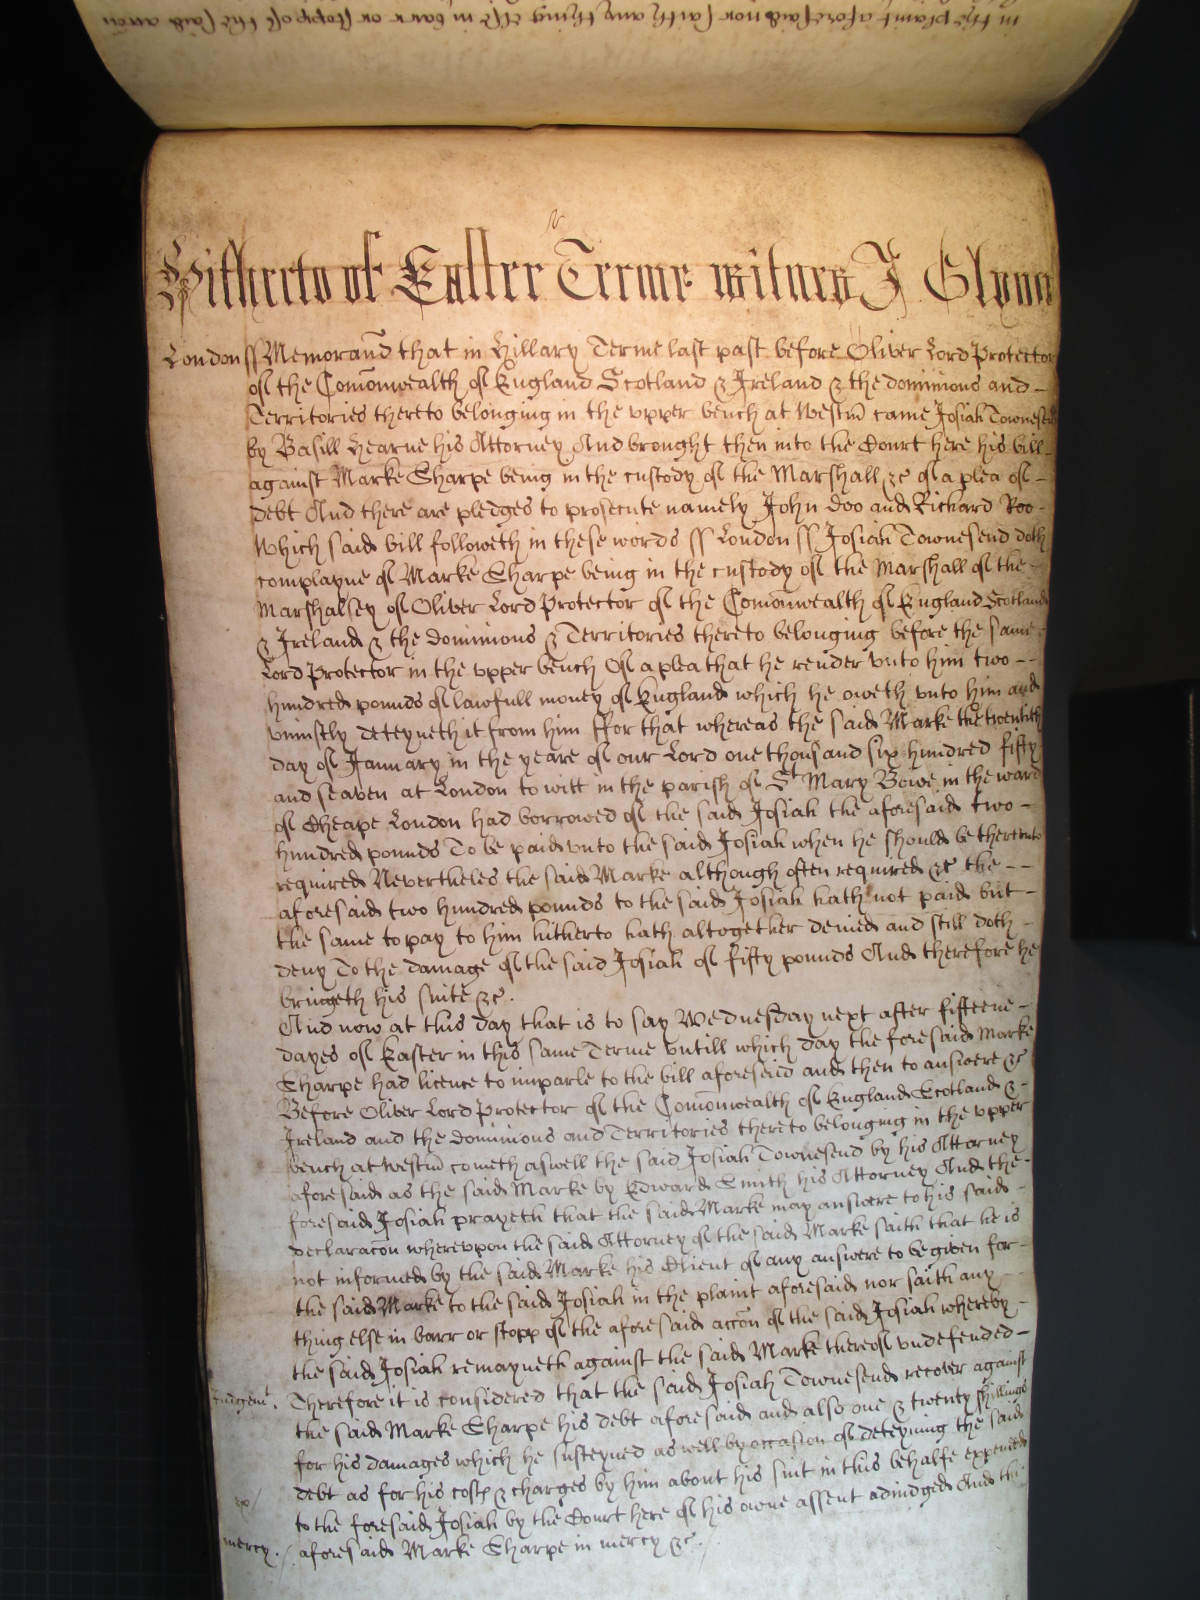 in the plaint aforesaid nor saith any thing else in barr or stopp of the said accon
Hitherto of Easter Terme witnes J Glynn
London ss Memorand that in Hillary Terme last past before Oliver Lord Protector
of the Comonwealth of England Scotland & Ireland & the dominions and
Territories thereto belonging in the upper bench at Westm came Josiah Townesend
by Basill Hearne his Attorney And brought then into the Court here his bill
against Marke Sharpe being in the custody of the Marshall &c of a plea of
debt And there are pledges to prosecute namely John Doo and Richard Roo
Which said bill followeth in these words ss London ss Josiah Townesend doth
complayne of Marke Sharpe being in the custody of the Marshall of the
Marshalsey of Oliver Lord Protector of the Comonwealth of England Scotland
& Ireland & the dominions & Territories thereto belonging before the same
Lord Protector in the upper bench Of a plea that he render unto him two
hundred pounds of lawfull money of England which he oweth unto him and
uniustly deteyneth it from him ffor that whereas the said Marke the twentith
day of January in the yeare of our Lord one thousand six hundred fifty
and seaven at London to witt in the parish of St Mary Bowe in the ward
of Cheape London had borrowed of the said Josiah the aforesaid two
hundred pounds To be paid unto the said Josiah when he should be thereunto
required Nevertheles the said Marke although often required &c the
aforesaid two hundred pounds to the said Josiah hath not paid but
the same to pay to him hitherto hath altogether denied and still doth
deny To the damage of the said Josiah of fifty pounds And therefore he
bringeth his suite &c.
And now at this day that is to say Wednesday next after fifteene
dayes of Easter in this same Terme untill which day the foresaid Marke
Sharpe had licence to imparle to the bill aforesaid and then to answere &c
Before Oliver Lord Protector of the Comonwealth of England Scotland &
Ireland and the dominions and Territories thereto belonging in the upper
bench at Westm cometh aswell the said Josiah Townesend by his Attorney
aforesaid as the said Marke by Edward Smith his Attorney And the
foresaid Josiah prayeth that the said Marke may answere to his said
declaracon whereupon the said Attorney of the said Marke saith that he is
not informed by the said Marke his Client of any answere to be given for
the said Marke to the said Josiah in the plaint aforesaid nor saith any
thing else in barr or stopp of the aforesaid accon of the said Josiah whereby
the said Josiah remayneth against the said Marke thereof undefended
Judgemt. Therefore it is considered that the said Josiah Townesend recover against
the said Marke Sharpe his debt aforesaid and also one & twenty shillings
for his damages which he susteyned as well by occasion of deteyning the said
debt as for his costs & charges by him about his suit in this behalfe expended
to the foresaid Josiah by the Court here of his owne assent adiudged And the
mercy. aforesaid Marke Sharpe in mercy &c.